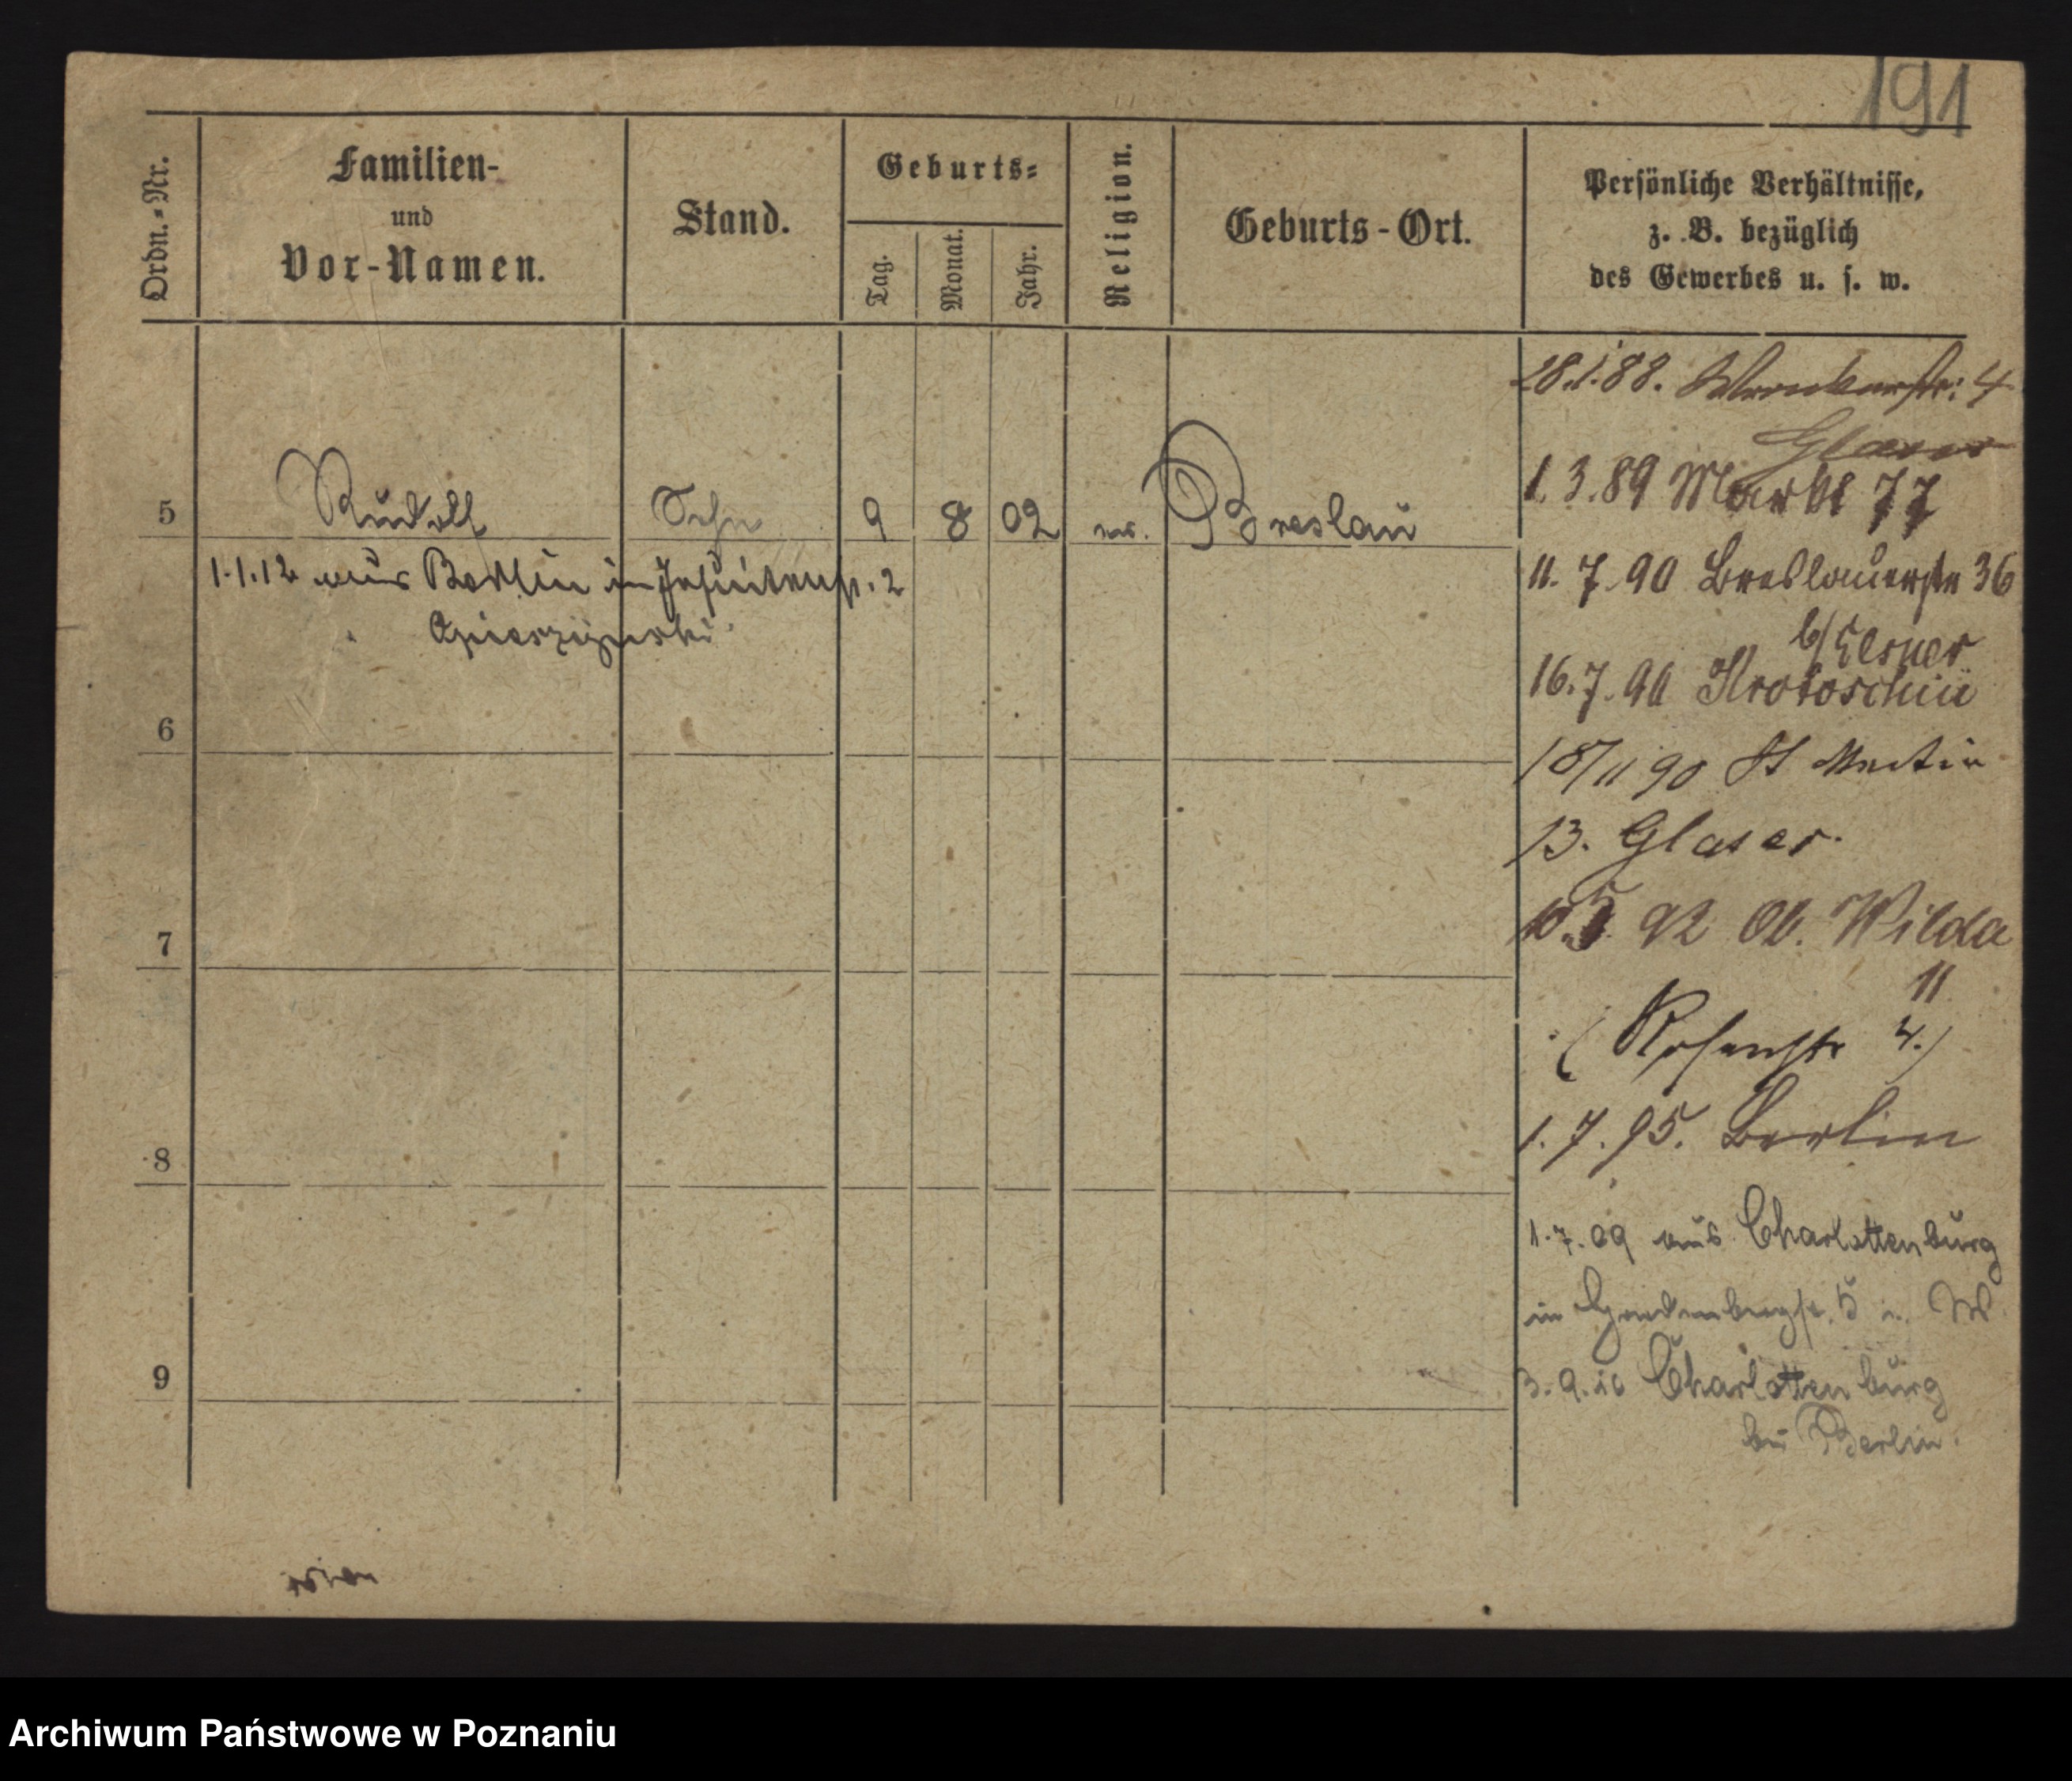 191
Ordn.-Nr.
Familien-
und
Vor-Namen.
Stand.
Geburts-
Tag.
Monat.
Jahr.
Religion.
Geburts-Ort.
Persönliche Verhältnisse,
z. B. bezüglich
des Gewerbes u. s. w.
28.1.88. Wronkerstr. 4
Glaser
1.3.89 Markt 77
5 Rudolf Sohn 9 8 02 Breslau
11.7.90 Breslauerstr 36
b/ Elsner
1.1.12 aus Berlin in Jesuitenstr. 2
16.7.90 Krotoschin
6
18/11 90 St Martin
13. Glaser.
7
92 Ob. Wilda
11
(Rosenstr 4.)
1.7.95. Berlin
8
1.7.09 aus Charlottenburg
in 5 W
9
3.9.10 Charlottenburg
bei Berlin.
Archiwum Państwowe w Poznaniu